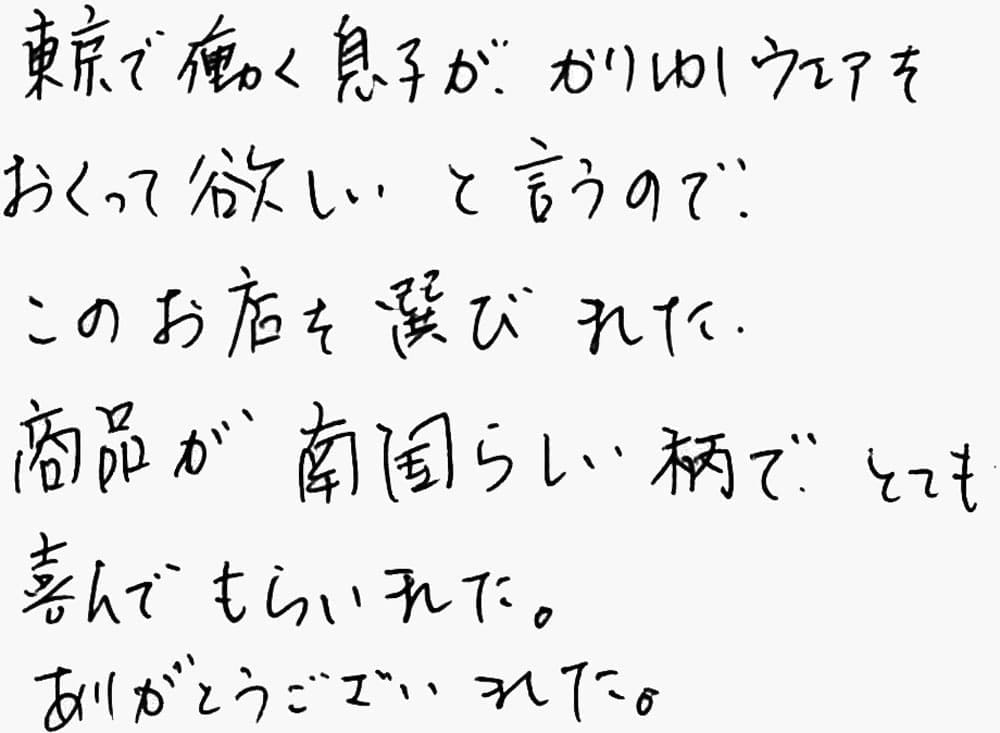 東京で働く息子が、かりゆしウェアを
おくって欲しいと言うので、
このお店を選びました.
商品が南国らしい柄で、とても
喜んでもらいました。
ありがとうございました。